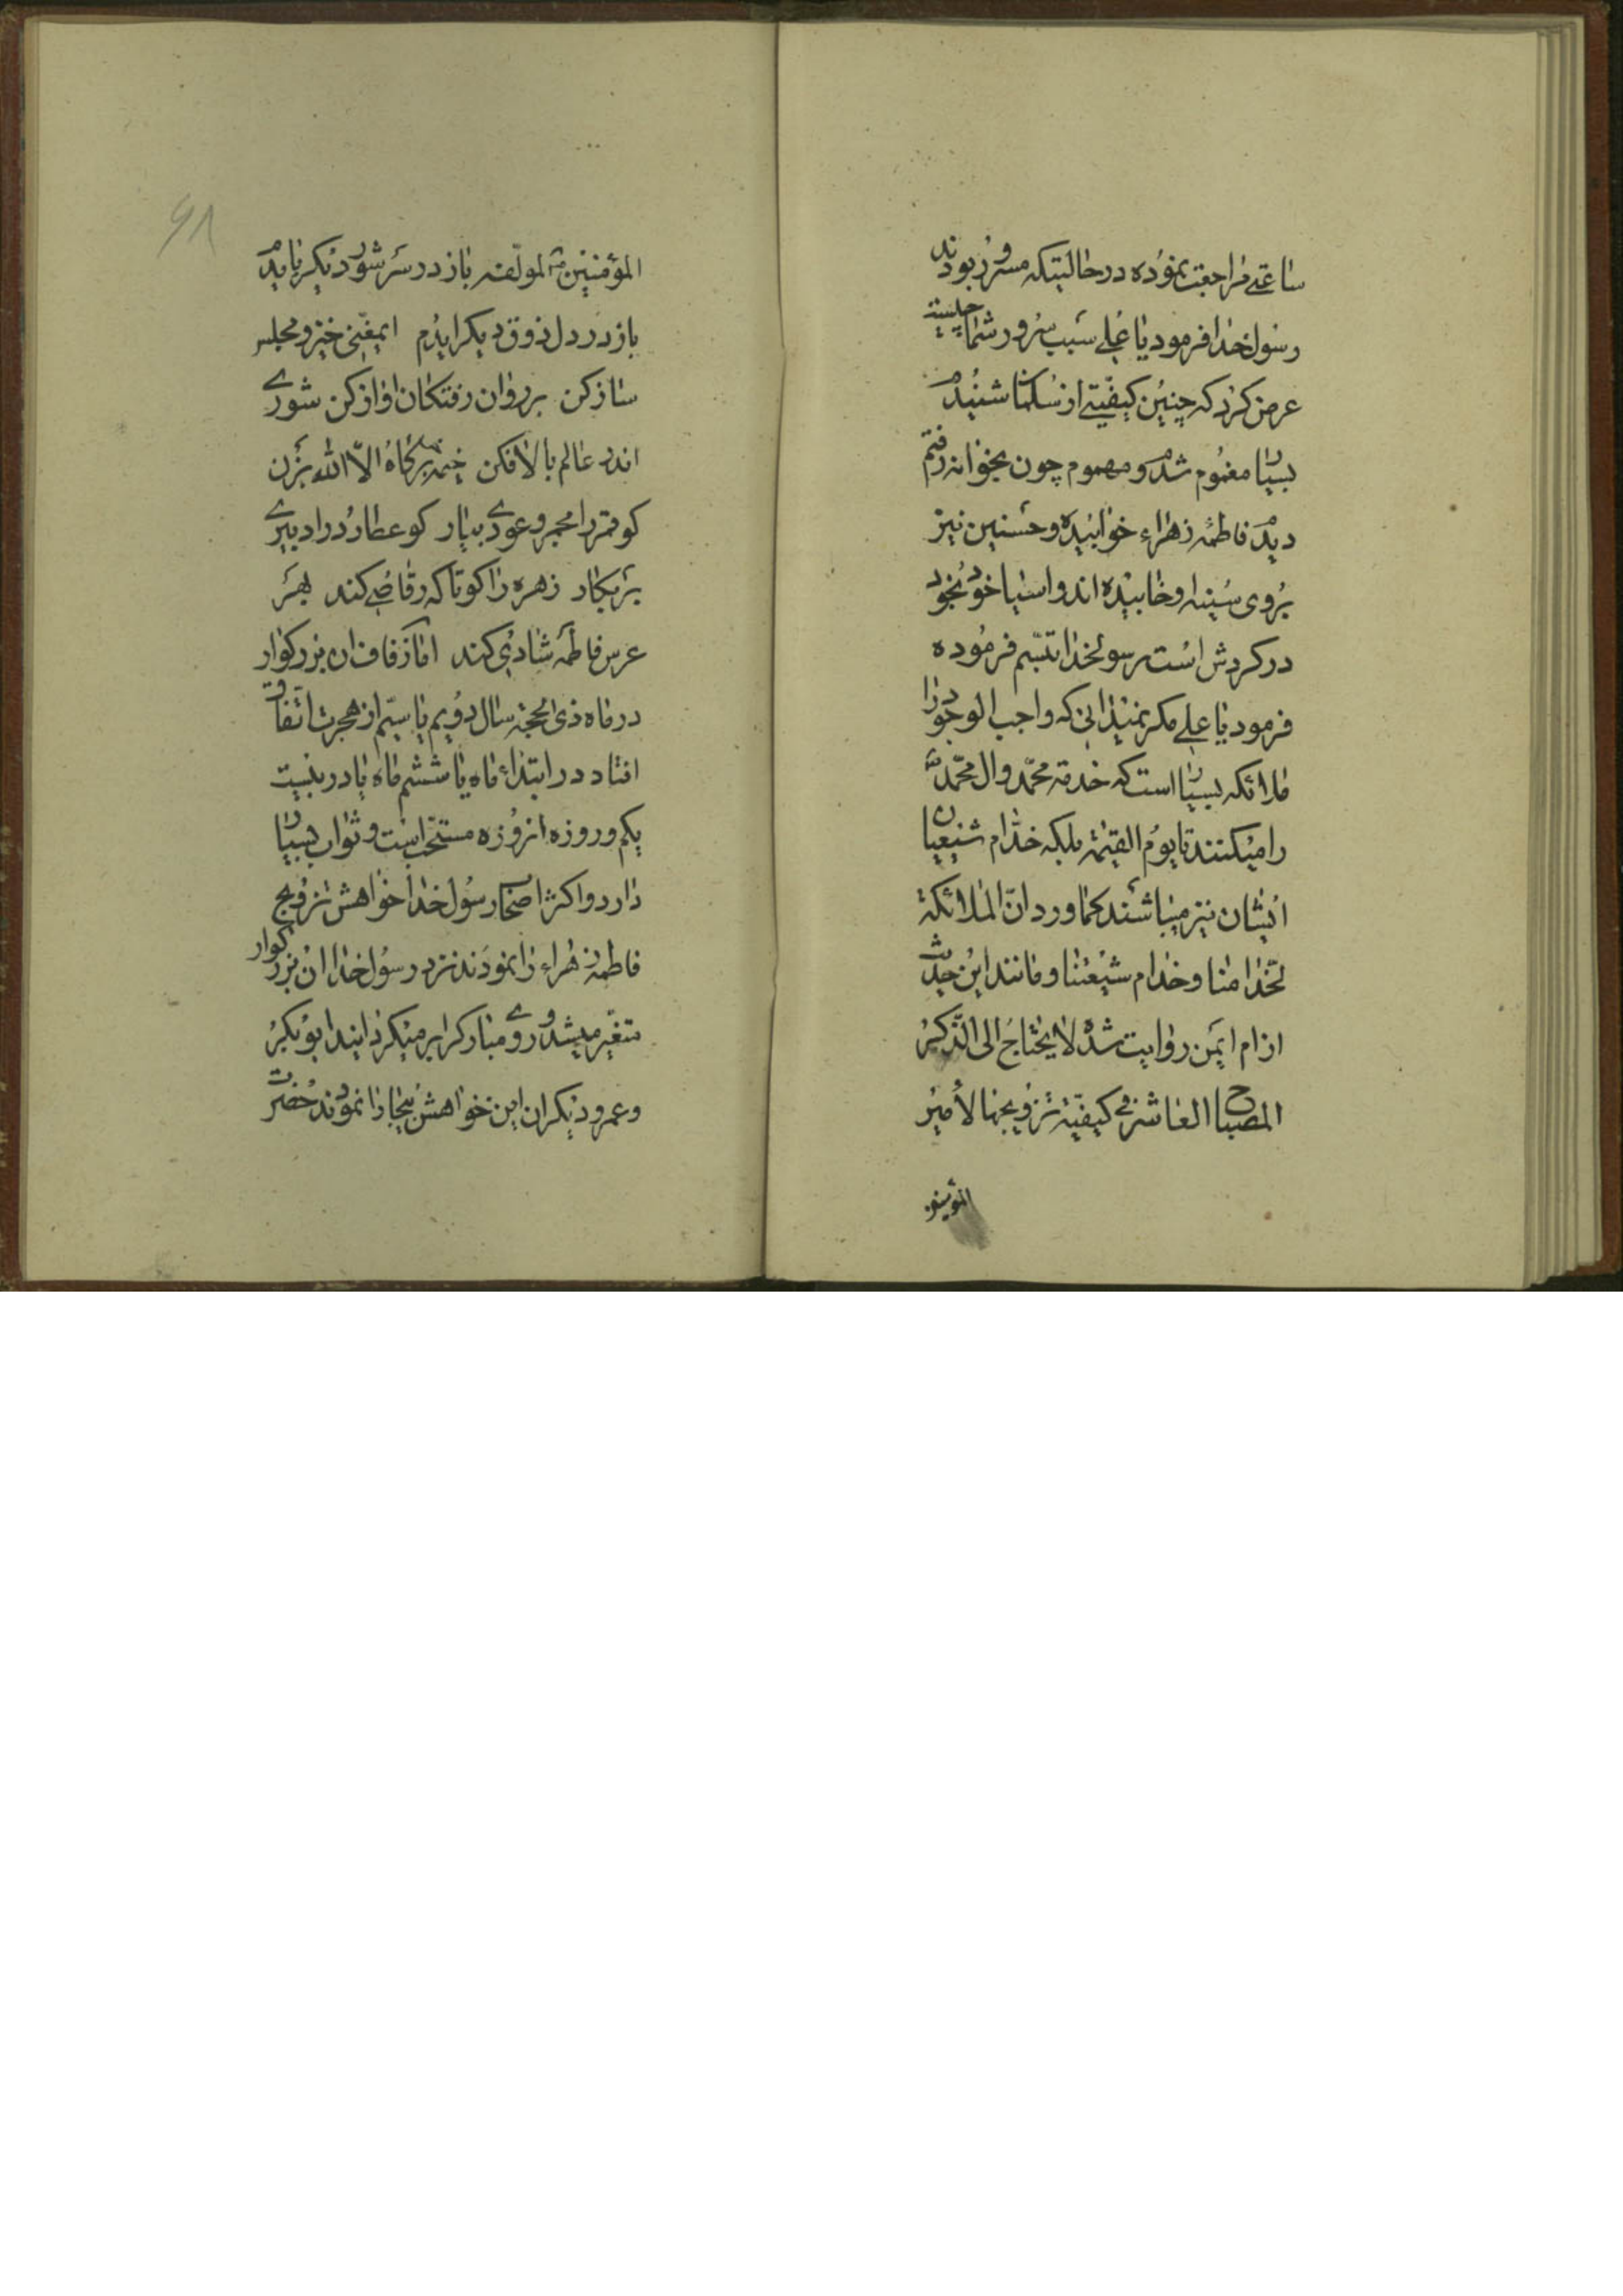 ساعتی مراجعت نموده در حالتیکه مسرور بودند
رسول خدا فرمود یا علی سبب سرور شما چیست
عرض کرد که چنین کیفیتی از سلمان شنیدم
بسیار مغموم شدم و مهموم چون بخانه رفتم
دیدم فاطمه زهراء خوابیده و حسنین نیز
بروی سینه او خابیده اند و اسیا خود بخود
در کردش است رسولخدا تبسم فرموده
فرمود یا علی مکر نمیدانی که واجب الوجود را
ملائکه بسیار است که خدمة محمد و ال محمد
را میکنند تا یوم القیمة بلکه خدام شیعیان
ایشان نیز میباشند کما ورد ان الملائکة
لخدامنا و خدام شیعتنا و مانند این حدیث
از ام ایمن روایت شده لا یحتاج الی الذکر
المصباح العاشر فی کیفیة تزویجها لأمیر
المؤمنین
المؤمنین لمولفه باز در سر شور دیکر یابدم
باز در دل ذوق دیکر ایدم ایمغنی خیز و مجلس
ساز کن بر روان رفتکان اواز کن شوری
اندر عالم بالا فکن خیمه بر کاه الا الله بزن
کو قمر را مجمر و عودی بیار کو عطارد را دبیری
بر بکار زهره را کو تا که رقاصی کند بهر
عرس فاطمه شادی کند اما زفاف ان بزرکوار
در ماه ذی الحجة سال دویم یا سیم از هجرت اتفاق
افتاد در ابتداء ماه یا ششم ماه یا در بیست
یکم و روزه انروزه مستحب است و ثواب بسیار
دارد و اکثر اصحاب رسول خدا خواهش تزویج
فاطمه زهراء را نمودند نزد رسول خدا ان بزرکوار
متغیر میشد و روی مبارکرا بر میکردانید ابو بکر
و عمر و دیکران این خواهش بیجا را نمودند حضرت